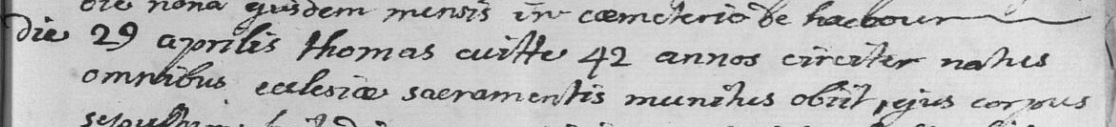 die nona ejusdem mensis in cœmeterio de harbour
die 29 aprilis thomas cuitte 42 annos circiter natus
omnibus ecclesiæ sacramentis munitus obiit, ejus corpus